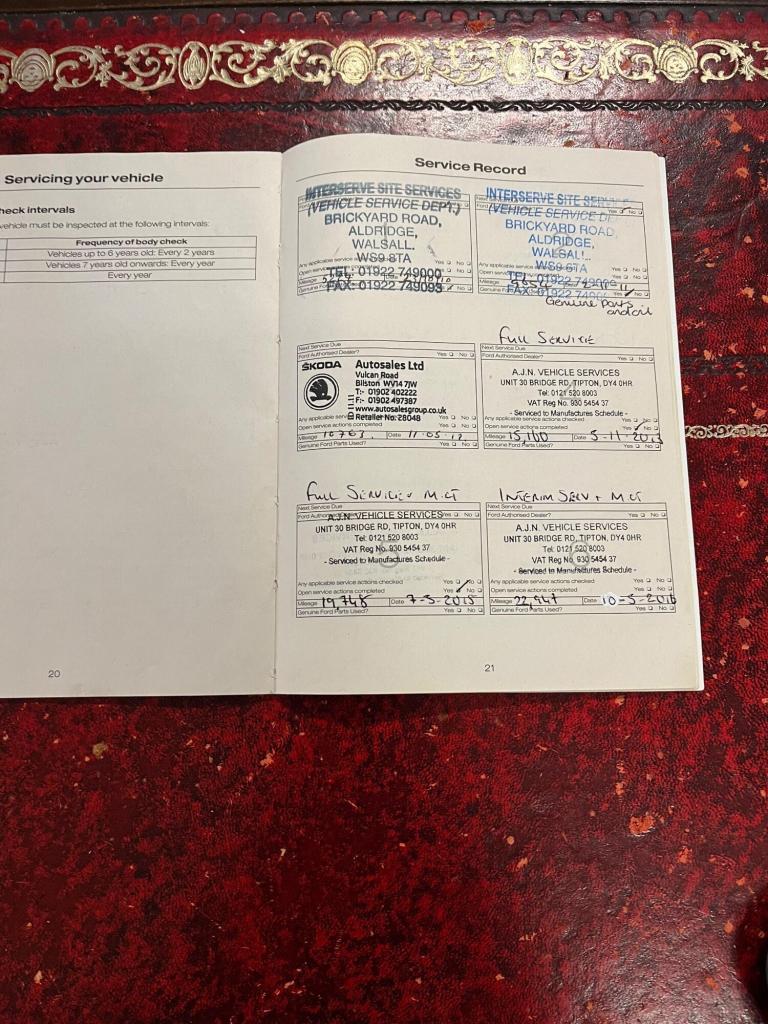 Servicing your vehicle
heck intervals
vehicle must be inspected at the following intervals:
Frequency of body check
Vehicles up to 6 years old: Every 2 years
Vehicles 7 years old onwards: Every year
Every year
20
Service Record
INTERSERVE SITE SERVICES
(VEHICLE SERVICE DEPT.)
BRICKYARD ROAD,
ALDRIDGE,
WALSALL.
WS9 8TA
TEL: 01922 749000
FAX: 01922 749093
Mileage
INTERSERVE SITE
(VEHICLE SERVICE
BRICKYARD ROAD,
ALDRIDGE,
Yes No
Mileage
Genuine Parts
and oil
Next Service Due
Ford Authorised Dealer? Yes No
ŠKODA Autosales Ltd
Vulcan Road
Bilston WV14 7JW
T:- 01902 402222
F:- 01902 497387
www.autosalesgroup.co.uk
Retailer No: 28048
Yes No
Open service actions completed Yes No
Mileage 10763. Date 11-05-12
Genuine Ford Parts Used? Yes No
Full Service
Next Service Due
Ford Authorised Dealer? Yes No
A.J.N. VEHICLE SERVICES
UNIT 30 BRIDGE RD, TIPTON, DY4 0HR
Tel: 0121 520 8003
VAT Reg No. 930 5454 37
- Serviced to Manufactures Schedule -
Any applicable service actions checked Yes No
Open service actions completed Yes No
Mileage 15,100 Date 5-11-2013
Genuine Ford Parts Used? Yes No
Full Service + M.O.T
Next Service Due
Ford Authorised Dealer? Yes No
A.J.N. VEHICLE SERVICES
UNIT 30 BRIDGE RD, TIPTON, DY4 0HR
Tel: 0121 520 8003
VAT Reg No. 930 5454 37
- Serviced to Manufactures Schedule -
Any applicable service actions checked Yes No
Open service actions completed Yes No
Mileage 19,748 Date 7-5-2015
Genuine Ford Parts Used? Yes No
Interim Serv + M.O.T
Next Service Due
Ford Authorised Dealer? Yes No
A.J.N. VEHICLE SERVICES
UNIT 30 BRIDGE RD, TIPTON, DY4 0HR
Tel: 0121 520 8003
VAT Reg No. 930 5454 37
- Serviced to Manufactures Schedule -
Any applicable service actions checked Yes No
Open service actions completed Yes No
Mileage 22,947 Date 10-5-2016
Genuine Ford Parts Used? Yes No
21